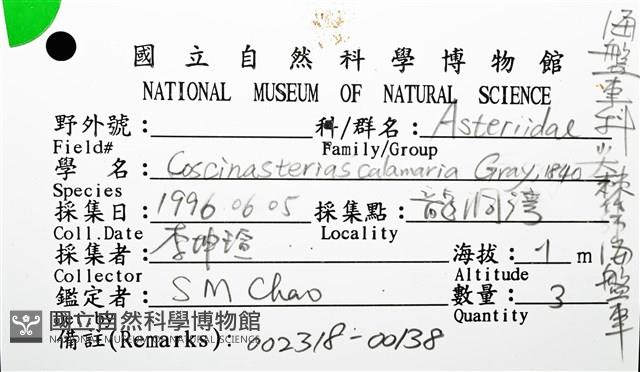 國立自然科學博物館
NATIONAL MUSEUM OF NATURAL SCIENCE
野外號： 科/群名： Asteriidae
Field# Family/Group
學 名： Coscinasterias calamaria Gray, 1840
Species
採集日： 1996 06 05 採集點： 龍洞灣
Coll.Date Locality
採集者： 李坤瑄 海拔： -1 m
Collector Altitude
鑑定者： S M Chao 數量： 3
Quantity
國立自然科學博物館
NATIONAL MUSEUM OF NATURAL SCIENCE
備註(Remarks)： 002318-00138
海盤車科 棘海盤車